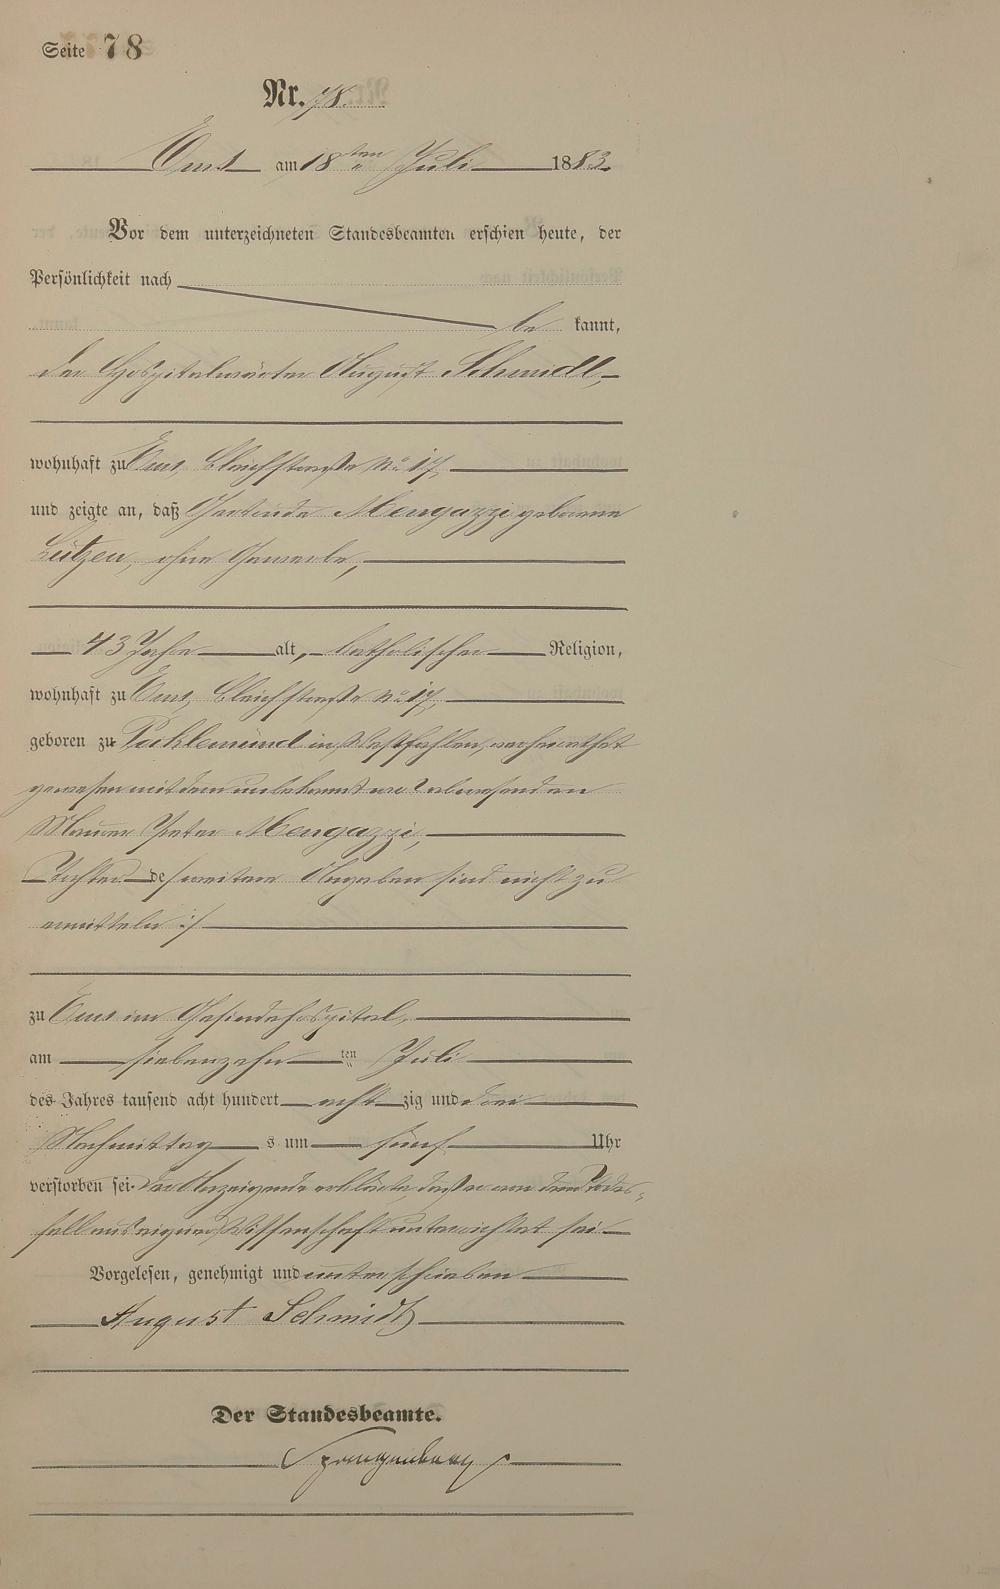 Seite 78
Nr. 78.
Ems am 18ten Juli 1883.
Vor dem unterzeichneten Standesbeamten erschien heute, der
Persönlichkeit nach
be kannt,
der Hospitalwärter August Schmidt,
wohnhaft zu Ems, Bleichstraße No 17,
und zeigte an, daß Gertrude Mengazzi geborene
Lützen, ohne Gewerbe,
43 Jahre alt, katholischer Religion,
wohnhaft zu Ems, Bleichstraße No 17,
geboren zu in Westfahlen, verheirathet
gewesen mit dem unbekannt wo? abwesenden
Maurer Peter Mengazzi,
Tochter de/ weitere Angaben sind nicht zu
ermitteln :/
zu Ems im Gesindehospital,
am siebenzehn ten Juli
des Jahres tausend acht hundert acht zig und drei
Nachmittag s um fünf Uhr
verstorben sei. Der Anzeigende erklärte, daß er von dem Todes-
fall aus eigner Wissenschaft unterrichtet sei
Vorgelesen, genehmigt und unterschrieben
August Schmidt
Der Standesbeamte.
Spangenberg